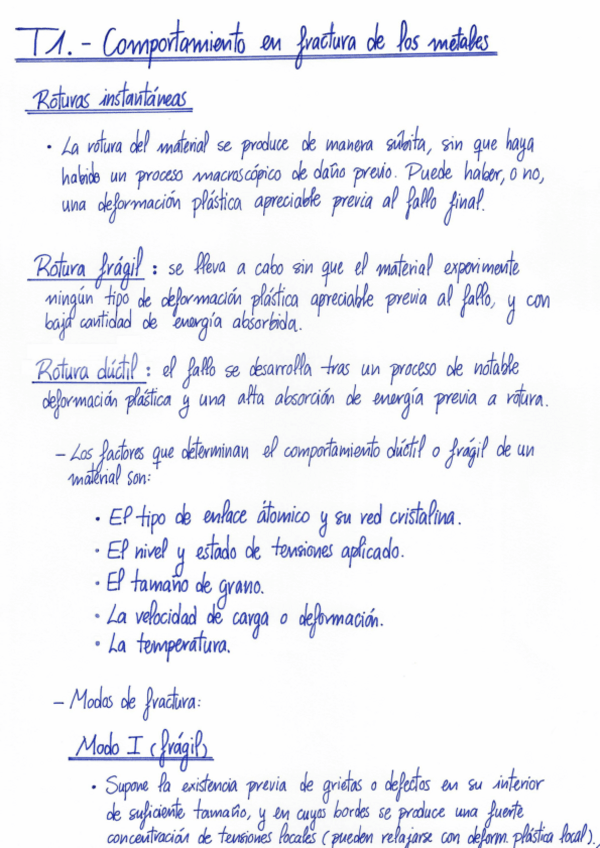 T1.- Comportamiento en fractura de los metales
Roturas instantáneas
• La rotura del material se produce de manera súbita, sin que haya
habido un proceso macroscópico de daño previo. Puede haber, o no,
una deformación plástica apreciable previa al fallo final.
Rotura frágil: se lleva a cabo sin que el material experimente
ningún tipo de deformación plástica apreciable previa al fallo, y con
baja cantidad de energía absorbida.
Rotura dúctil: el fallo se desarrolla tras un proceso de notable
deformación plástica y una alta absorción de energía previa a rotura.
- Los factores que determinan el comportamiento dúctil o frágil de un
material son:
• El tipo de enlace átomico y su red cristalina.
• El nivel y estado de tensiones aplicado.
• El tamaño de grano.
• La velocidad de carga o deformación.
• La temperatura.
- Modos de fractura:
Modo I (frágil)
• Supone la existencia previa de grietas o defectos en su interior
de suficiente tamaño, y en cuyos bordes se produce una fuerte
concentración de tensiones locales (pueden relajarse con deform. plástica local).